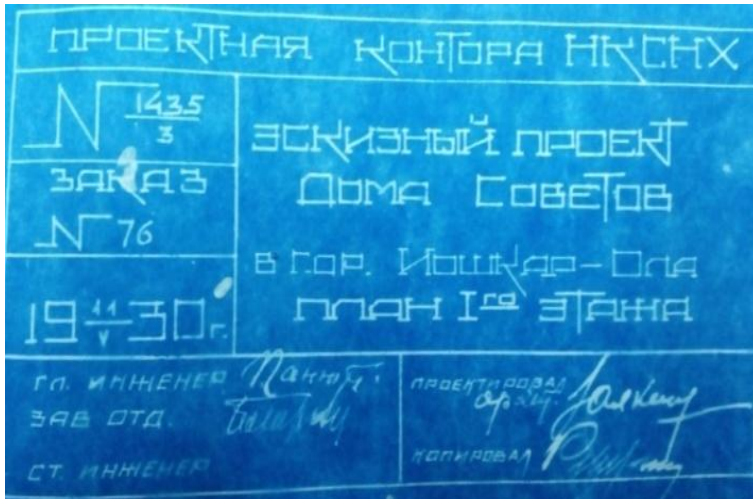 ПРОЕКТНАЯ КОНТОРА НКСНХ
N 1435/3
ЗАКАЗ
N 76
19 11/V 30 г.
ЭСКИЗНЫЙ ПРОЕКТ
ДОМА СОВЕТОВ
В ГОР. ИОШКАР-ОЛА
ПЛАН I го ЭТАЖА
ГЛ. ИНЖЕНЕР
ЗАВ ОТД.
СТ. ИНЖЕНЕР
ПРОЕКТИРОВАЛ
КОПИРОВАЛ